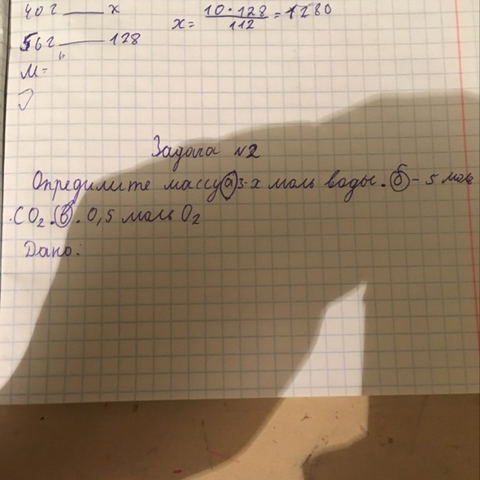 40г — х
х = 10·128 / 112 = 1280
56г — 128
М =
Задача №2
Определите массу а) 3-х моль воды. б) - 5 моль
CO₂. в). 0,5 моль O₂
Дано: